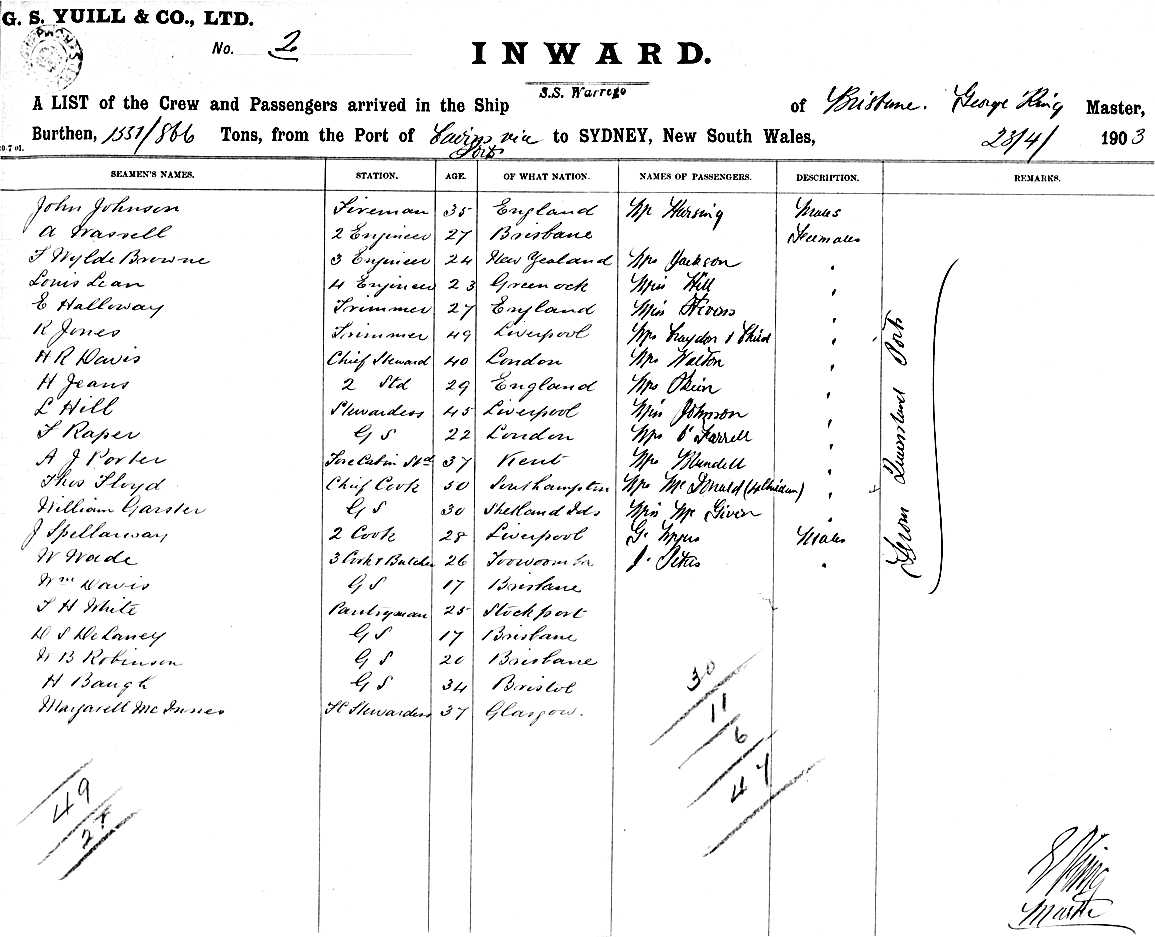 G. S. YUILL & CO., LTD.
No. 2
INWARD.
S.S. Warrego
A LIST of the Crew and Passengers arrived in the Ship of Brisbane. George King Master,
Burthen, 1551/866 Tons, from the Port of Cairns via Ports to SYDNEY, New South Wales, 23/4/ 1903
SEAMEN'S NAMES. STATION. AGE. OF WHAT NATION. NAMES OF PASSENGERS. DESCRIPTION. REMARKS.
John Johnson Fireman 35 England Males
A 2 Engineer 27 Brisbane Feemales
F Wylde Browne 3 Engineer 24 New Zealand Mrs Jackson
Louis Lean 4 Engineer 23 Greenock Miss Hill
E Halloway Trimmer 27 England Miss
R Jones Trimmer 49 Liverpool Mrs & Child
H R Davis Chief Steward 40 London Mrs Walton
H Jeans 2 Std 29 England Mrs
L Hill Stewardess 45 Liverpool Miss Johnson
F Raper G S 22 London Mrs O'Farrell
A J Porter Fore Cabin Std 37 Kent Mrs Blundell
Thos Floyd Chief Cook 50 Southampton Mrs McDonald
William Garster G S 30 Shetland Ids Miss Mc Given
J Spellarway 2 Cook 28 Liverpool G. Myers Males
W Wade 3 Cook & Butcher 26 Toowoomba J.
Wm Davis G S 17 Brisbane
F H White Pantryman 25 Stockport
D S DeLaney G S 17 Brisbane
W B Robinson G S 20 Brisbane
H Baugh G S 34 Bristol
Margarett McInnes FC Stewardess 37 Glasgow.
From Queensland Ports
30
11
6
47
49
28
G King
Master